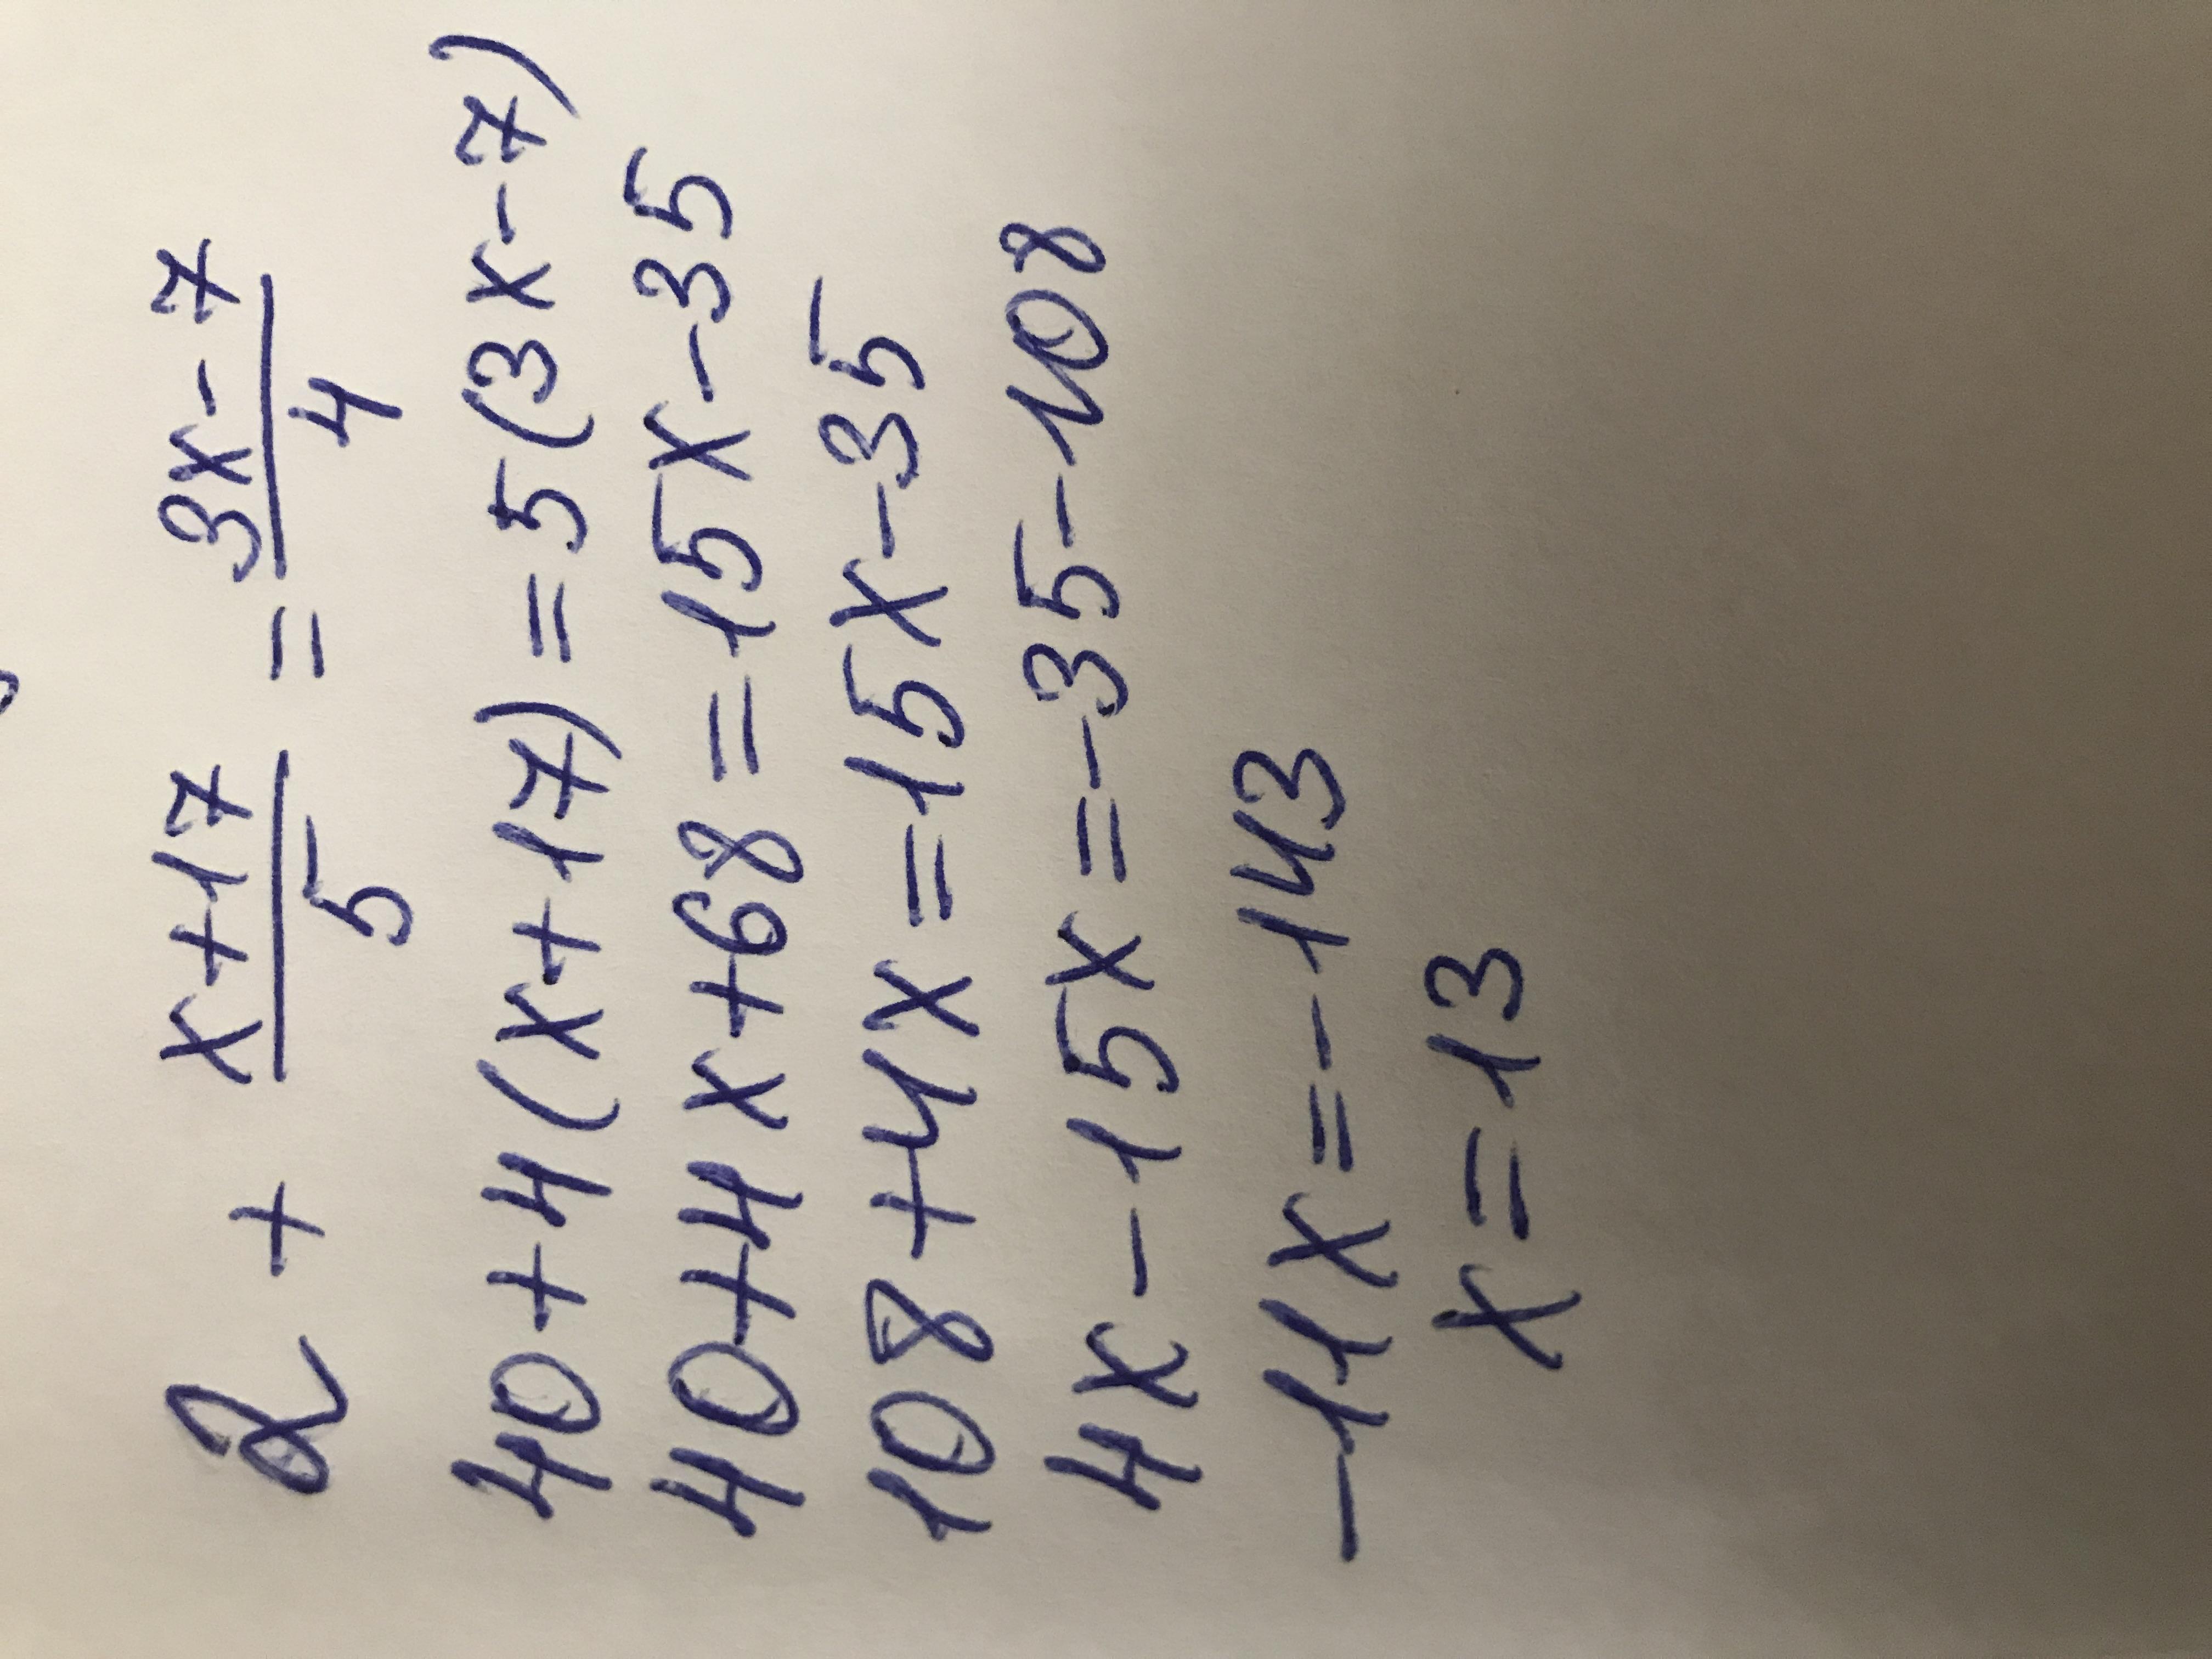 2 + x+17/5 = 3x-7/4
40+4(x+17)=5(3x-7)
40+4x+68=15x-35
108+4x=15x-35
4x-15x=-35-108
-11x=-143
x=13